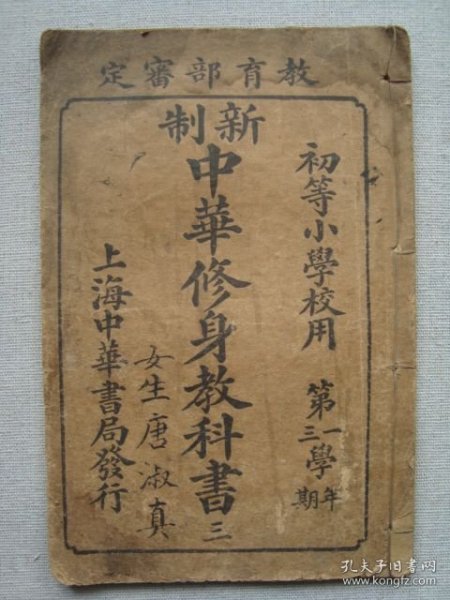 教育部審定
初等小學校用 第一學年 三期
新制
中華修身教科書 三
女生唐淑真
上海中華書局發行
孔夫子旧书网
www.kongfz.com